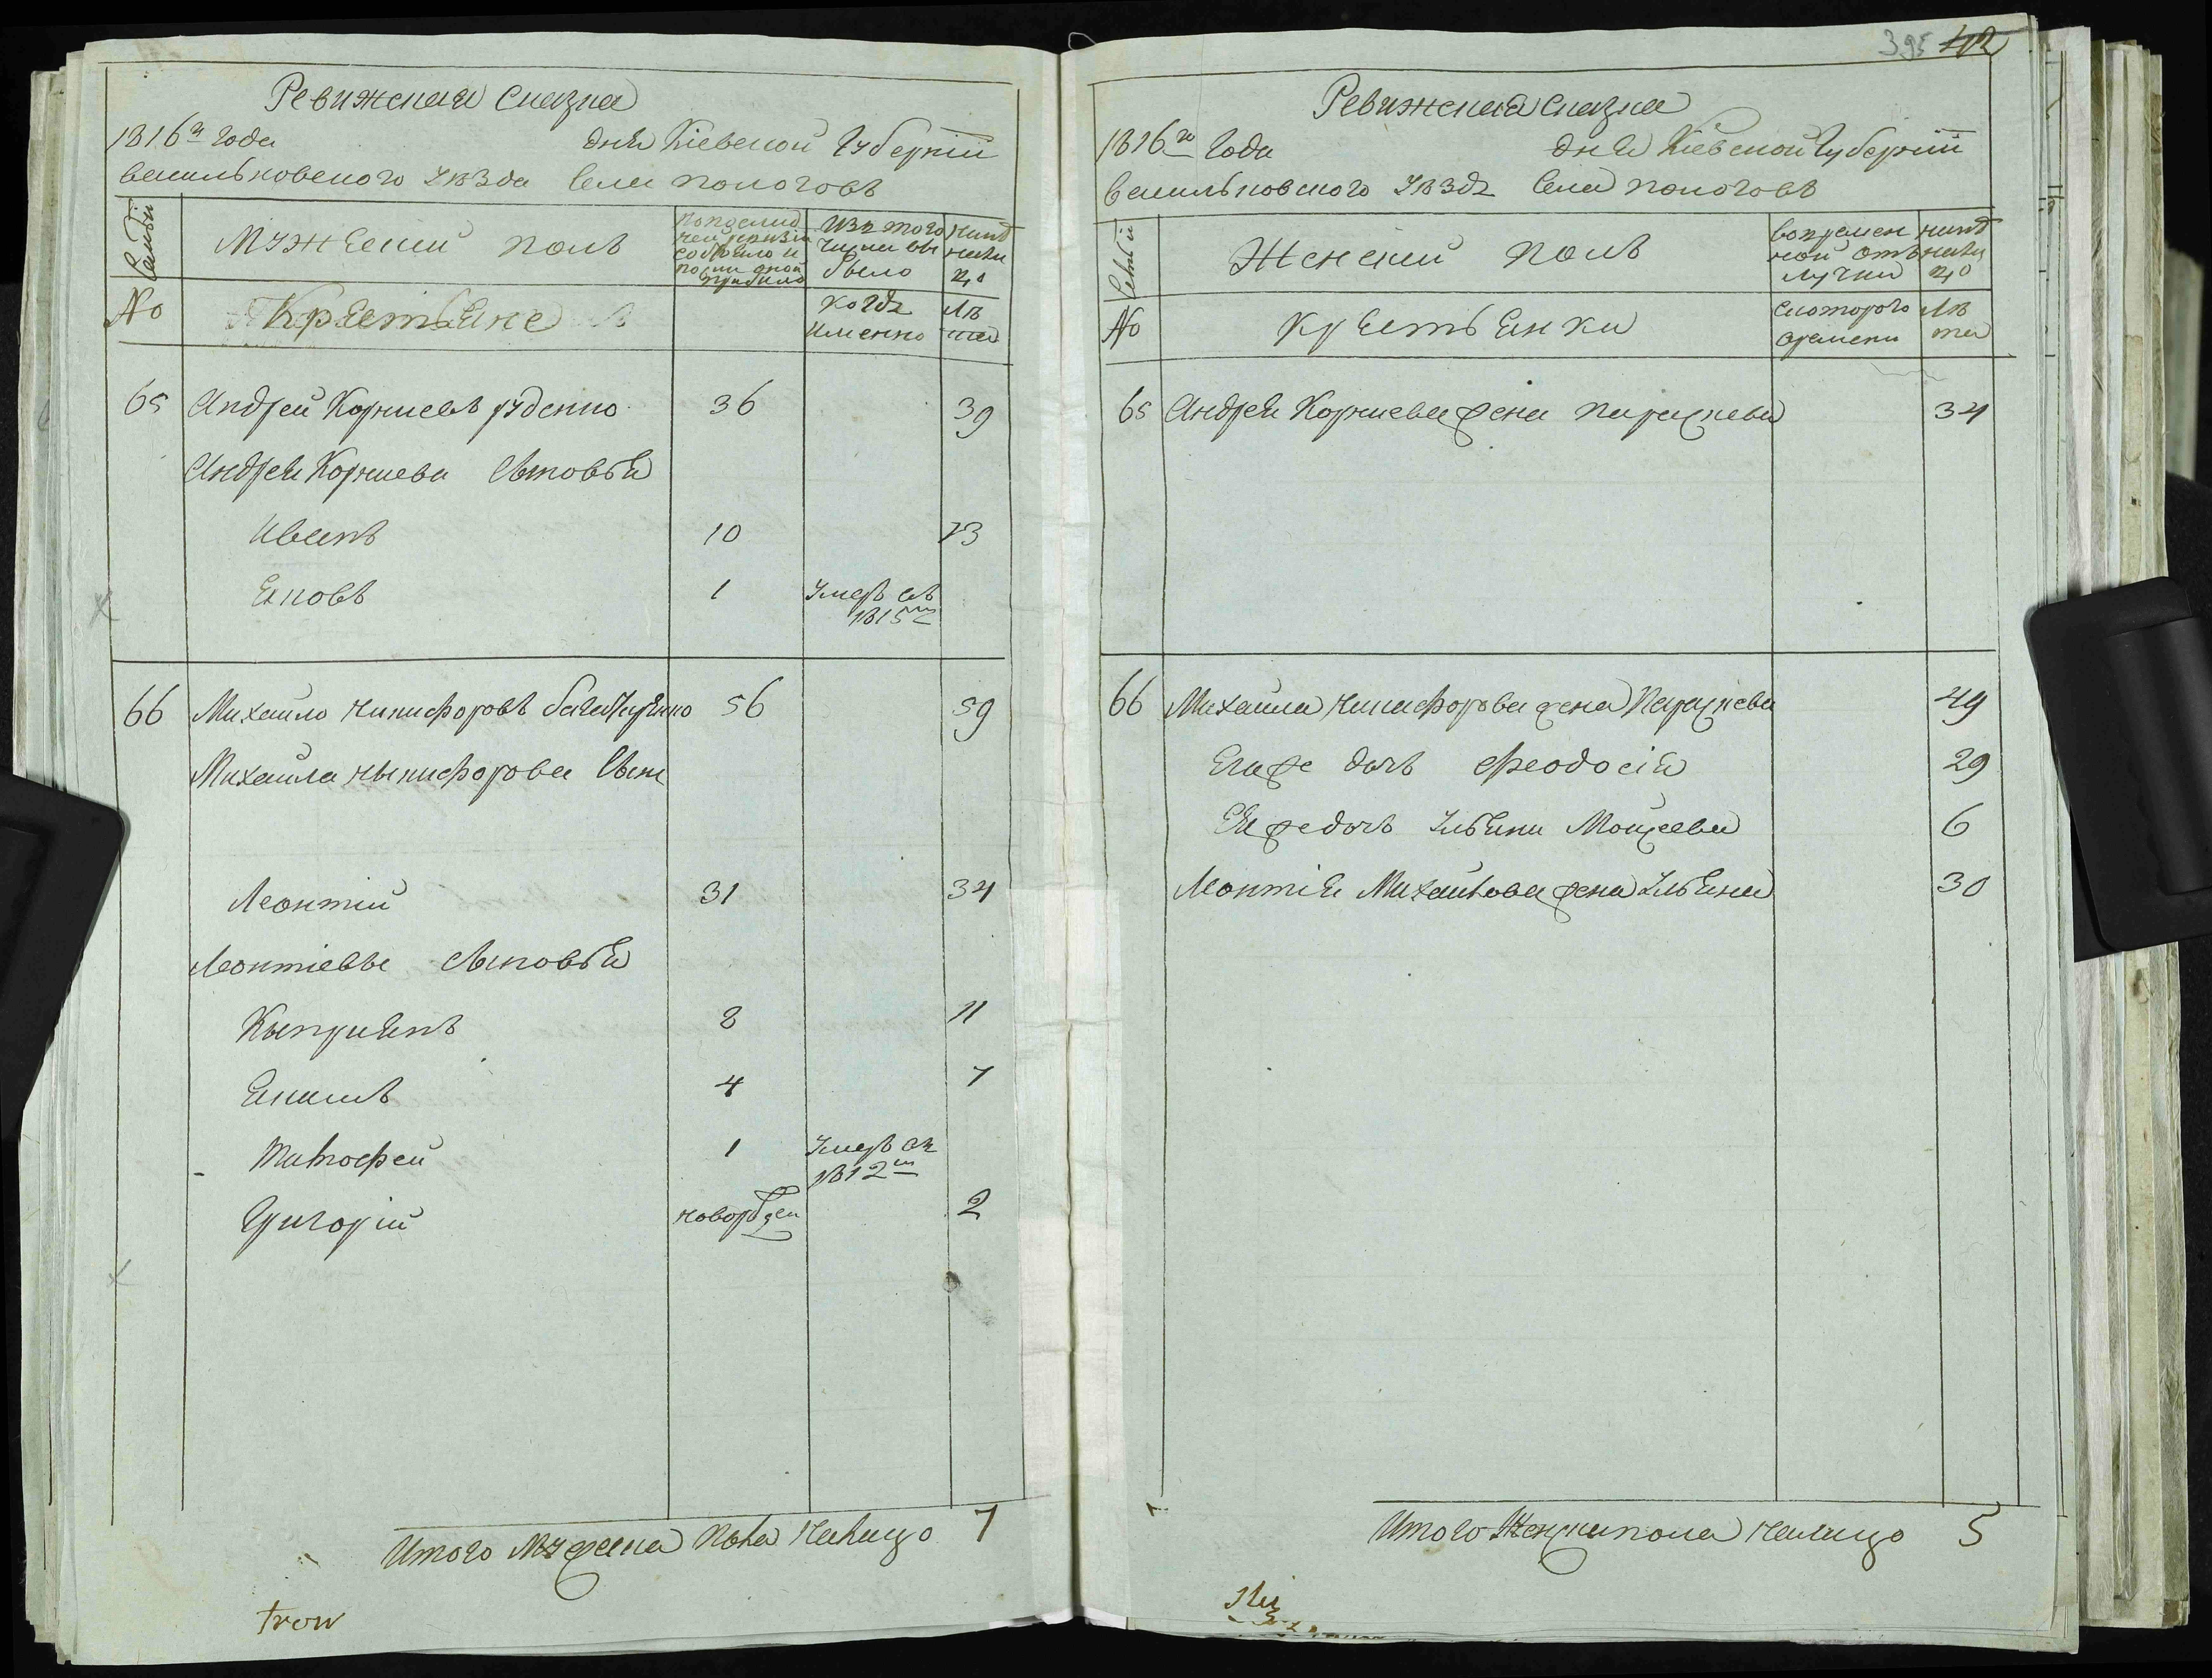 Ревижская Сказка
1816го года дня Кіевской Губерніи
васильковского уезда Села пологовъ
Семьи
Мужеский полъ
по последней ревизіи состояло и после оной прибыло
Изъ того числа выбыло
нынѣ налицо
No
Крестьяне
когда именно
Лѣта
65 Андрей Корниевъ руденко 36 39
Андрея Корниева Сыновья
Иванъ 10 13
Яковъ 1 Умеръ въ 1815м
66 Михаило никифоровъ 56 59
Михаила Ныкифорова Сынъ
Леонтий 31 34
Леонтіевы сыновья
Кыприянъ 8 11
Якимъ 4 7
Тимофей 1 Умеръ въ 1812м
Григорій новорожден 2
Итого мужеска пола налицо 7
trow
395 42
Ревижская Сказка
1816го года дня Кіевской Губерніи
васильковского уезда Села пологовъ
Семьи
Женский полъ
во временной отлучки
нынѣ налицо
No
Крестьянки
Скоторого времени
Лѣта
65 Андрея Корниева жена параскева 34
66 Михаила Никифорова жена Параскева 49
Егоже дочь Феодосія 29
Еяже дочь Ульяна Моисеева 6
Леонтія Михайлова жена Ульяна 30
Итого Женска пола налицо 5